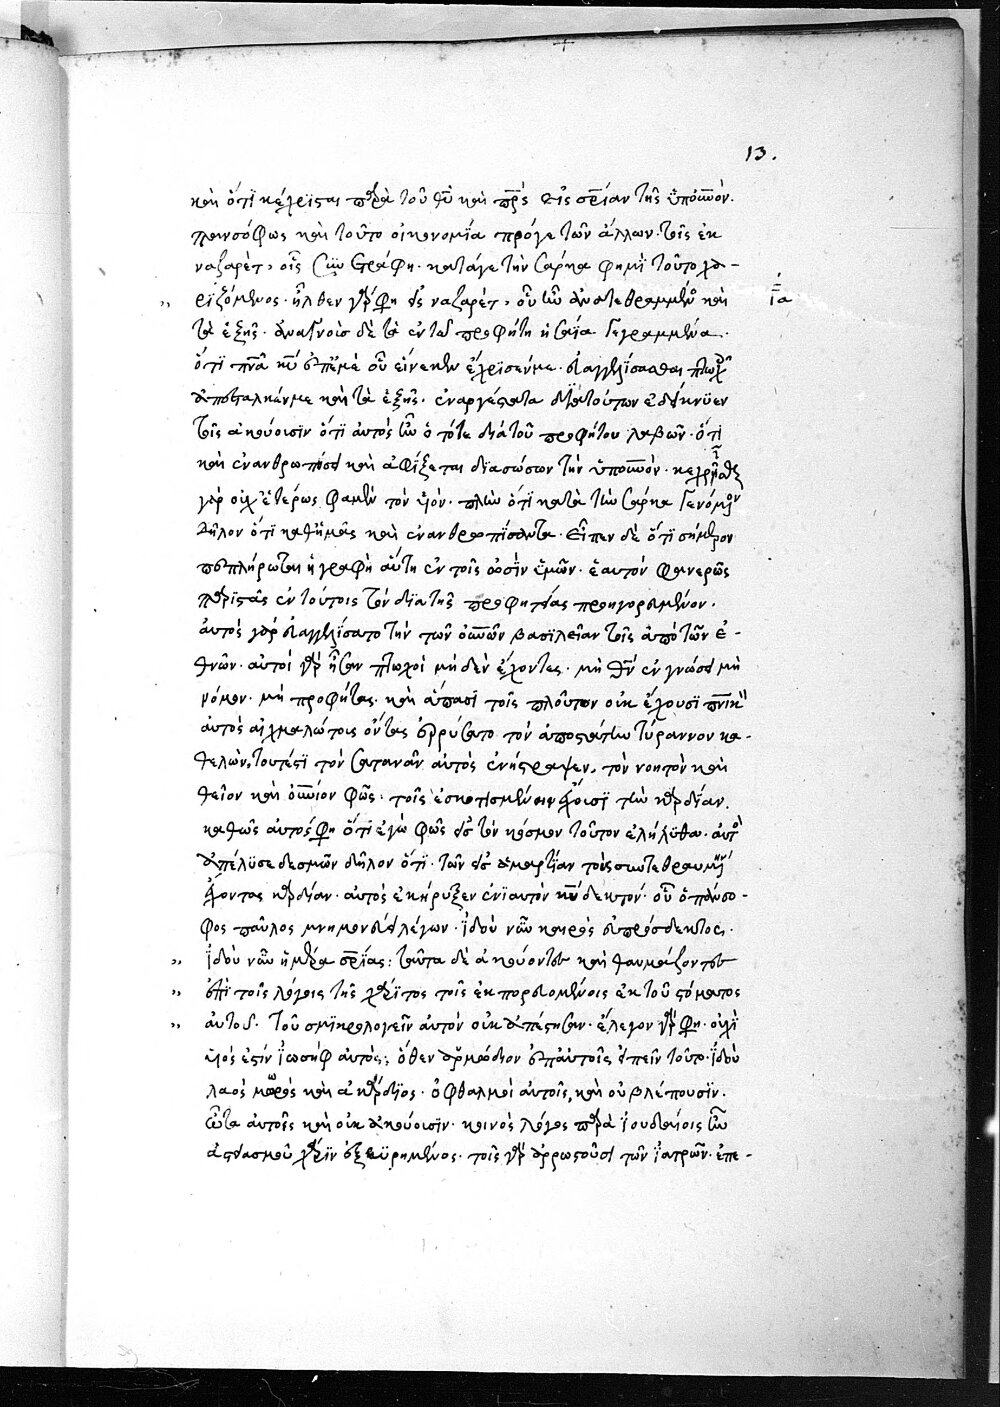 13.
καὶ ὅτι κέχρισται παρὰ τοῦ θ̅υ̅ καὶ π̅ρ̅ς̅ εἰς σ̅ρ̅ίαν τῆς ὑπ' οὐ̅ν̅όν.
πανσόφως καὶ τοῦτο οἰκονομία πρόγε τῶν ἄλλων τοῖς ἐκ
ναζαρὲτ, οἷς συνετράφη. κατάγε τὴν σάρκα φημὶ τοῦτο χω-
ριζόμενος. ἦλθεν γάρ φη εἰς ναζαρὲτ, οὗ ἦν ἀνατεθραμμένος καὶ
ι̅α̅
τὰ ἑξῆς. ἀναγνοὺς δὲ τὰ ἐν τῶ προφήτη ἡσαΐα γεγραμμένα.
ὅτι π̅ν̅α̅ κ̅υ̅ ἐπ' ἐμὲ οὗ εἵνεκεν ἔχρισέν με. εὐαγγελίσασθαι πτωχοῖς
ἀπέσταλκέν με καὶ τὰ ἑξῆς. ἐναργέστατα διὰ τούτων ἐδείκνυεν
τοῖς ἀκούουσιν ὅτι αὐτὸς ἦν ὁ τότε διὰ τοῦ προφήτου λαβῶν. ὅτι
καὶ ἐνανθρωπήσει καὶ ἀφίξεται διασώσων τὴν ὑπ' οὐ̅ν̅όν. κεχρῖσθαι
γὰρ οὐχ' ἑτέρως φαμὲν τὸν υἱόν. πλὴν ὅτι κατὰ τὴν σάρκα γενόμενον
δῆλον ὅτι καθ' ἡμᾶς καὶ ἐνανθρωπήσαντα. Εἶπεν δὲ ὅτι σήμερον
πεπλήρωται ἡ γραφὴ αὕτη ἐν τοῖς ὠσὶν ὑμῶν. ἑαυτὸν φανερῶς
παριστὰς ἐν τούτοις τὸν διὰ τῆς προφητείας προηγορευμένον.
αὐτὸς γὰρ εὐαγγελίσατο τὴν τῶν οὐ̅ν̅ῶν βασιλείαν τοῖς ἀπὸ τῶν ἐ-
θνῶν. αὐτοὶ γὰρ ἦσαν πτωχοὶ μηδὲν ἔχοντες. μὴ θ̅ν̅ ἐν γνώσει μὴ
νόμον. μὴ προφήτας. καὶ ἅπασι τοῖς πλοῦτον οὐκ ἔχουσι π̅ν̅ικόν
αὐτὸς αἰχμαλώτοις ὄντας ἐρρύσατο τὸν ἀποστάτην τύραννον κα-
θελών, τουτέστι τὸν σατανᾶν αὐτὸς ἐνήστραψεν. τὸν νοητὸν καὶ
θεῖον καὶ οὐ̅ν̅ιον φῶς. τοῖς ἐσκοτισμένην ἔχουσι τὴν καρδίαν.
καθὼς αὐτός φη ὅτι ἐγὼ φῶς εἰς τὸν κόσμον τοῦτον ἐλήλυθα. αὐτὸς
ἀπέλυσε δεσμῶν δῆλον ὅτι. τῶν εἰς ἁμαρτίαν τοὺς συντεθραυμένην
ἔχοντας καρδίαν. αὐτὸς ἐκήρυξεν ἐνιαυτὸν κ̅υ̅ δεκτόν. οὗ ὁ πάνσο-
φος παῦλος μνημονεύει λέγων. ἰδοὺ νῦν καιρὸς εὐπρόσδεκτος.
ἰδοὺ νῦν ἡμέρα σ̅ρ̅ίας: ταῦτα δὲ ἀκούοντες καὶ θαυμάζοντες
ἐπὶ τοῖς λόγοις τῆς χάριτος τοῖς ἐκπορευομένοις ἐκ τοῦ στόματος
αὐτοῦ. τοῦ σμικρολογεῖν αὐτὸν οὐκ ἀπέστησαν. ἔλεγον γάρ φη. οὐχὶ
υἱός ἐστιν ἰωσὴφ αὐτὸς; ὅθεν ἁρμόδιον ἐπ' αὐτοῖς εἰπεῖν τοῦτο. ἰδοὺ
λαὸς μωρὸς καὶ ἀκάρδιος. ὀφθαλμοὶ αὐτοῖς, καὶ οὐ βλέπουσιν.
ὦτα αὐτοῖς καὶ οὐκ ἀκούουσιν. κοινὸς λόγος παρὰ ἰουδαίοις ἦν
ἀστεϊσμοῦ χάριν ἐξευρημένος. τοῖς γὰρ ἀρρωστοῦσι τῶν ἰατρῶν. ἐπε-